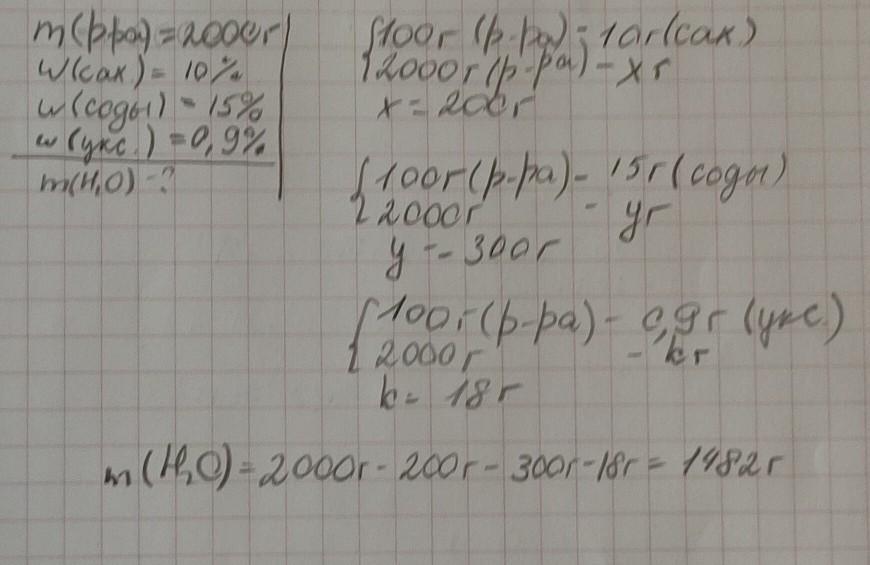 m(р-ра) = 2000г
W(сах) = 10%
w(соды) = 15%
w(укс.) = 0,9%
m(H₂O) - ?
{100г (р-ра) - 10г (сах)
2000г (р-ра) - x г
x = 200г
{100г (р-ра) - 15г (соды)
2000г - yг
y = 300г
{100г (р-ра) - 0,9г (укс.)
2000г - kг
k = 18г
m(H₂O) = 2000г - 200г - 300г - 18г = 1482г